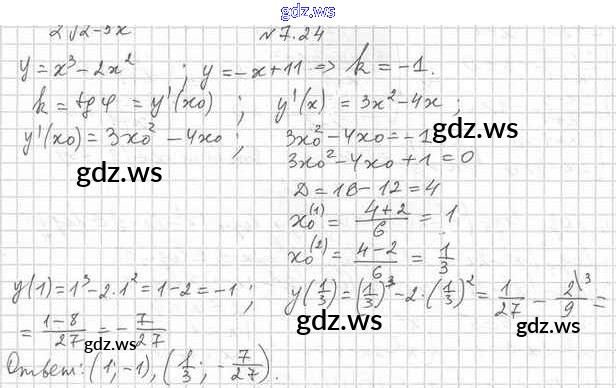 gdz.ws
2√2-5x
№7.24
y = x³ - 2x² ; y = -x + 11 => k = -1.
k = tg φ = y'(x₀) ; y'(x) = 3x² - 4x ;
y'(x₀) = 3x₀² - 4x₀ ; 3x₀² - 4x₀ = -1
gdz.ws
3x₀² - 4x₀ + 1 = 0
gdz.ws
D = 16 - 12 = 4
x₀⁽¹⁾ = (4+2)/6 = 1
gdz.ws
x₀⁽²⁾ = (4-2)/6 = 1/3
gdz.ws
y(1) = 1³ - 2·1² = 1 - 2 = -1 ; y(1/3) = (1/3)³ - 2·(1/3)² = 1/27 - 2\³/9 =
= (1-8)/27 = -7/27
gdz.ws
gdz.ws
Ответ: (1; -1), (1/3; -7/27).